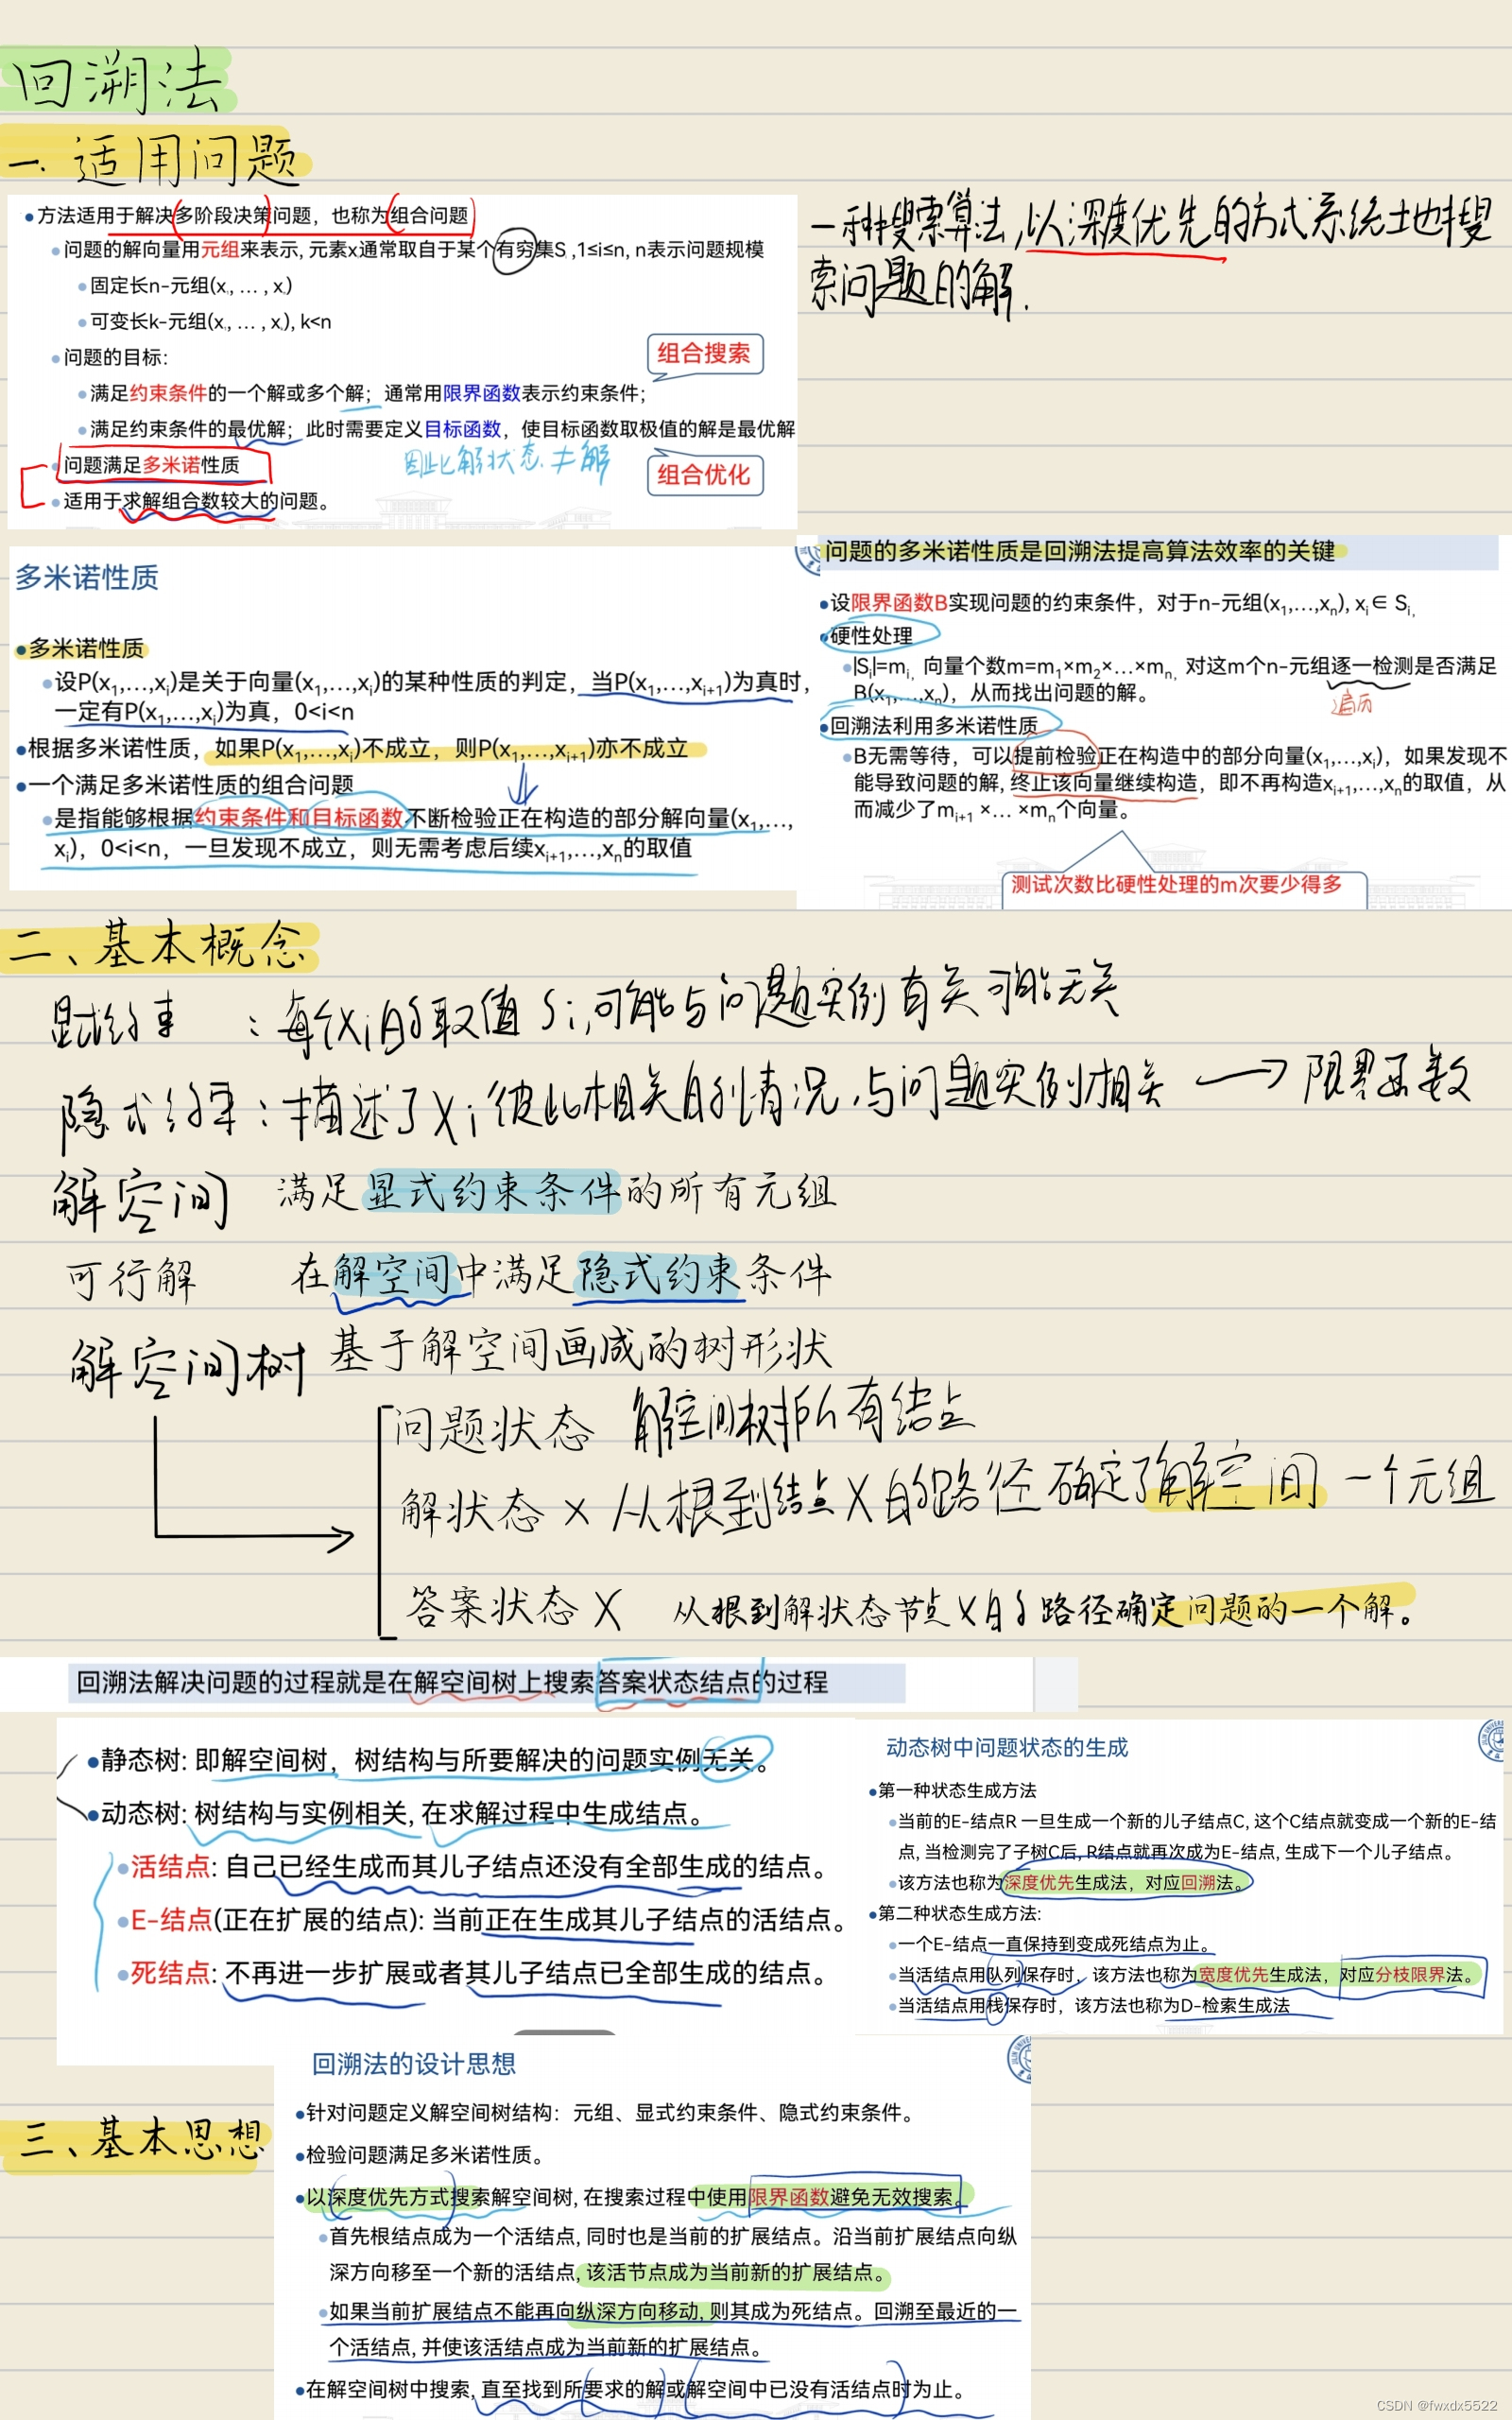 回溯法
一. 适用问题
•方法适用于解决多阶段决策问题，也称为组合问题
•问题的解向量用元组来表示, 元素x通常取自于某个有穷集S ,1≤i≤n, n表示问题规模
•固定长n-元组(x , … , x )
•可变长k-元组(x , … , x ), k<n
•问题的目标:
组合搜索
•满足约束条件的一个解或多个解；通常用限界函数表示约束条件；
•满足约束条件的最优解；此时需要定义目标函数，使目标函数取极值的解是最优解
•问题满足多米诺性质
因此解状态≠解
组合优化
•适用于求解组合数较大的问题。
一种搜索算法,以深度优先的方式系统地搜
索问题的解.
多米诺性质
•多米诺性质
•设P(x1,…,xi)是关于向量(x1,…,xi)的某种性质的判定，当P(x1,…,xi+1)为真时，
一定有P(x1,…,xi)为真，0<i<n
•根据多米诺性质，如果P(x1,…,xi)不成立，则P(x1,…,xi+1)亦不成立
•一个满足多米诺性质的组合问题
•是指能够根据约束条件和目标函数不断检验正在构造的部分解向量(x1,…,
xi)，0<i<n，一旦发现不成立，则无需考虑后续xi+1,…,xn的取值
问题的多米诺性质是回溯法提高算法效率的关键
•设限界函数B实现问题的约束条件，对于n-元组(x1,…,xn), xi∈ Si,
•硬性处理
•|Si|=mi, 向量个数m=m1×m2×…×mn, 对这m个n-元组逐一检测是否满足
B(x1,…,xn)，从而找出问题的解。
遍历
•回溯法利用多米诺性质
•B无需等待，可以提前检验正在构造中的部分向量(x1,…,xi)，如果发现不
能导致问题的解, 终止该向量继续构造，即不再构造xi+1,…,xn的取值，从
而减少了mi+1 ×… ×mn个向量。
测试次数比硬性处理的m次要少得多
二、基本概念
显式约束 : 每个xi的取值Si,可能与问题实例有关可能无关
隐式约束 : 描述了xi彼此相关的情况,与问题实例相关 → 限界函数
解空间 满足显式约束条件的所有元组
可行解 在解空间中满足隐式约束条件
解空间树 基于解空间画成的树形状
问题状态 解空间树所有结点
解状态 X 从根到结点X的路径确定了解空间一个元组
答案状态 X 从根到解状态节点X的路径确定问题的一个解。
回溯法解决问题的过程就是在解空间树上搜索答案状态结点的过程
•静态树: 即解空间树，树结构与所要解决的问题实例无关。
•动态树: 树结构与实例相关, 在求解过程中生成结点。
•活结点: 自己已经生成而其儿子结点还没有全部生成的结点。
•E-结点(正在扩展的结点): 当前正在生成其儿子结点的活结点。
•死结点: 不再进一步扩展或者其儿子结点已全部生成的结点。
动态树中问题状态的生成
•第一种状态生成方法
•当前的E-结点R 一旦生成一个新的儿子结点C, 这个C结点就变成一个新的E-结
点, 当检测完了子树C后, R结点就再次成为E-结点, 生成下一个儿子结点。
•该方法也称为深度优先生成法，对应回溯法。
•第二种状态生成方法:
•一个E-结点一直保持到变成死结点为止。
•当活结点用队列保存时，该方法也称为宽度优先生成法，对应分枝限界法。
•当活结点用栈保存时，该方法也称为D-检索生成法
三、基本思想
回溯法的设计思想
•针对问题定义解空间树结构：元组、显式约束条件、隐式约束条件。
•检验问题满足多米诺性质。
•以深度优先方式搜索解空间树, 在搜索过程中使用限界函数避免无效搜索。
•首先根结点成为一个活结点, 同时也是当前的扩展结点。沿当前扩展结点向纵
深方向移至一个新的活结点, 该活节点成为当前新的扩展结点。
•如果当前扩展结点不能再向纵深方向移动, 则其成为死结点。回溯至最近的一
个活结点, 并使该活结点成为当前新的扩展结点。
•在解空间树中搜索, 直至找到所要求的解或解空间中已没有活结点时为止。
CSDN @fwxdx5522